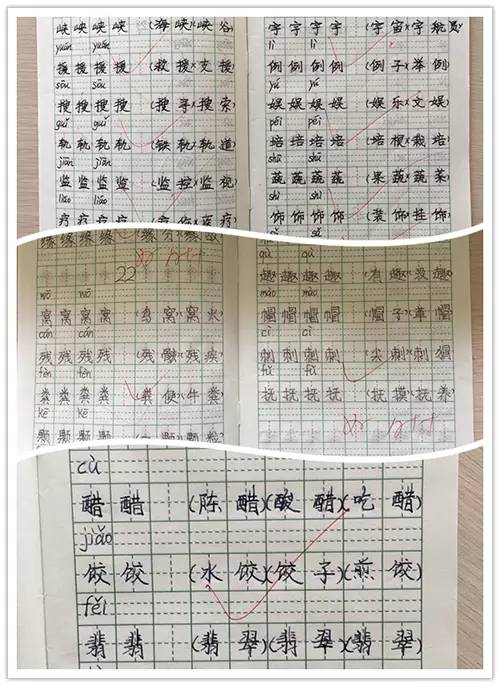 峡 峡 峡 峡 (海峡)(峡谷)
yuán yuán
援 援 援 援 (救援)(支援)
sōu sōu
搜 搜 搜 搜 (搜寻)(搜索)
guǐ guǐ
轨 轨 轨 轨 (铁轨)(轨道)
jiān jiān
监 监 监 监 (监控)(监视)
liáo liáo
疗 疗 疗 疗
宇 宇 宇 宇 (宇宙)(宇航员)
lì lì
例 例 例 例 (例子)(举例)
yú yú
娱 娱 娱 娱 (娱乐)(文娱)
péi péi
培 培 培 培 (培根)(栽培)
shū shū
蔬 蔬 蔬 蔬 (果蔬)(蔬菜)
shì shì
饰 饰 饰 饰 (装饰)(挂饰)
缘 缘 缘 缘 (缘分)
22
wō wō
窝 窝 窝 (鸟窝)(窝火)
cán cán
残 残 残 (残骸)(残疾)
fèn fèn
粪 粪 粪 (粪便)(牛粪)
kē kē
颗 颗 颗
qù qù
趣 趣 趣 (有趣)(没趣)
mào mào
帽 帽 帽 帽 (帽子)(草帽)
cì cì
刺 刺 刺 刺 (尖刺)(刺猬)
fǔ fǔ
抚 抚 抚 抚 (抚摸)(抚养)
cù
醋 醋 (陈醋)(酸醋)(吃醋)
jiǎo
饺 饺 (水饺)(饺子)(煎饺)
fěi
翡 翡 (翡翠)(翡翠)(翡翠)